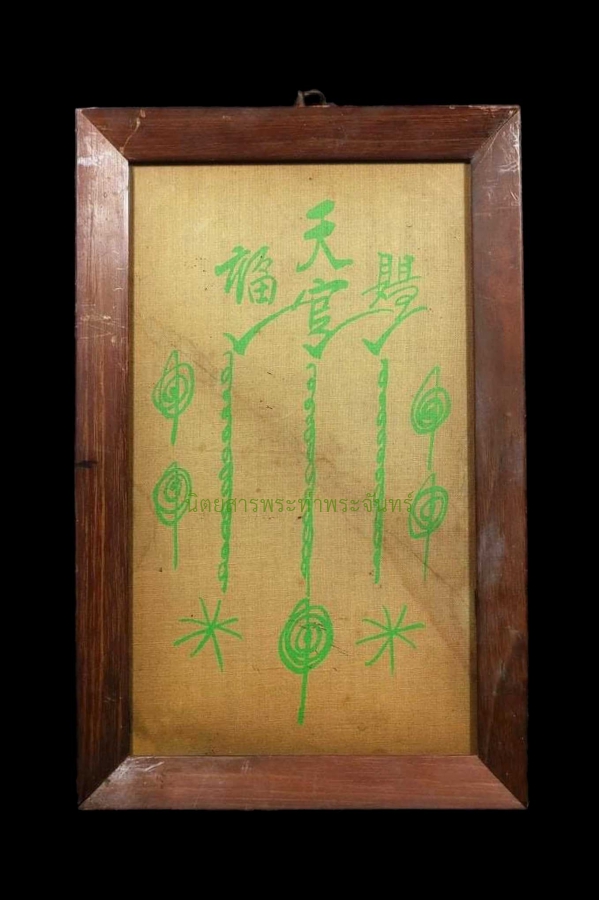 天官
賜
福
นิตยสารพระท่าพระจันทร์